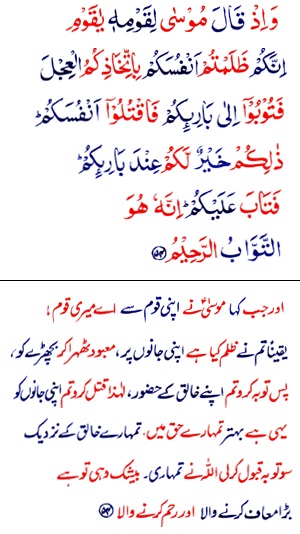 وَاِذْ قَالَ مُوْسٰى لِقَوْمِهٖ يٰقَوْمِ
اِنَّكُمْ ظَلَمْتُمْ اَنْفُسَكُمْ بِاتِّخَاذِكُمُ الْعِجْلَ
فَتُوْبُوْٓا اِلٰى بَارِئِكُمْ فَاقْتُلُوْٓا اَنْفُسَكُمْ ؕ
ذٰلِكُمْ خَيْرٌ لَّكُمْ عِنْدَ بَارِئِكُمْ ؕ
فَتَابَ عَلَيْكُمْ ؕ اِنَّهٗ هُوَ
التَّوَّابُ الرَّحِيْمُ ﴿۵۴﴾
اور جب کہا موسیٰؑ نے اپنی قوم سے اے میری قوم!
یقیناً تم نے ظلم کیا ہے اپنی جانوں پر، معبود ٹھہرا کر بچھڑے کو،
پس توبہ کرو تم اپنے خالق کے حضور، لہٰذا قتل کرو تم اپنی جانوں کو
یہی ہے بہتر تمہارے حق میں، تمہارے خالق کے نزدیک
سو توبہ قبول کر لی اللہ نے تمہاری۔ بیشک وہی تو ہے
بڑا معاف کرنے والا اور رحم کرنے والا ﴿۵۴﴾